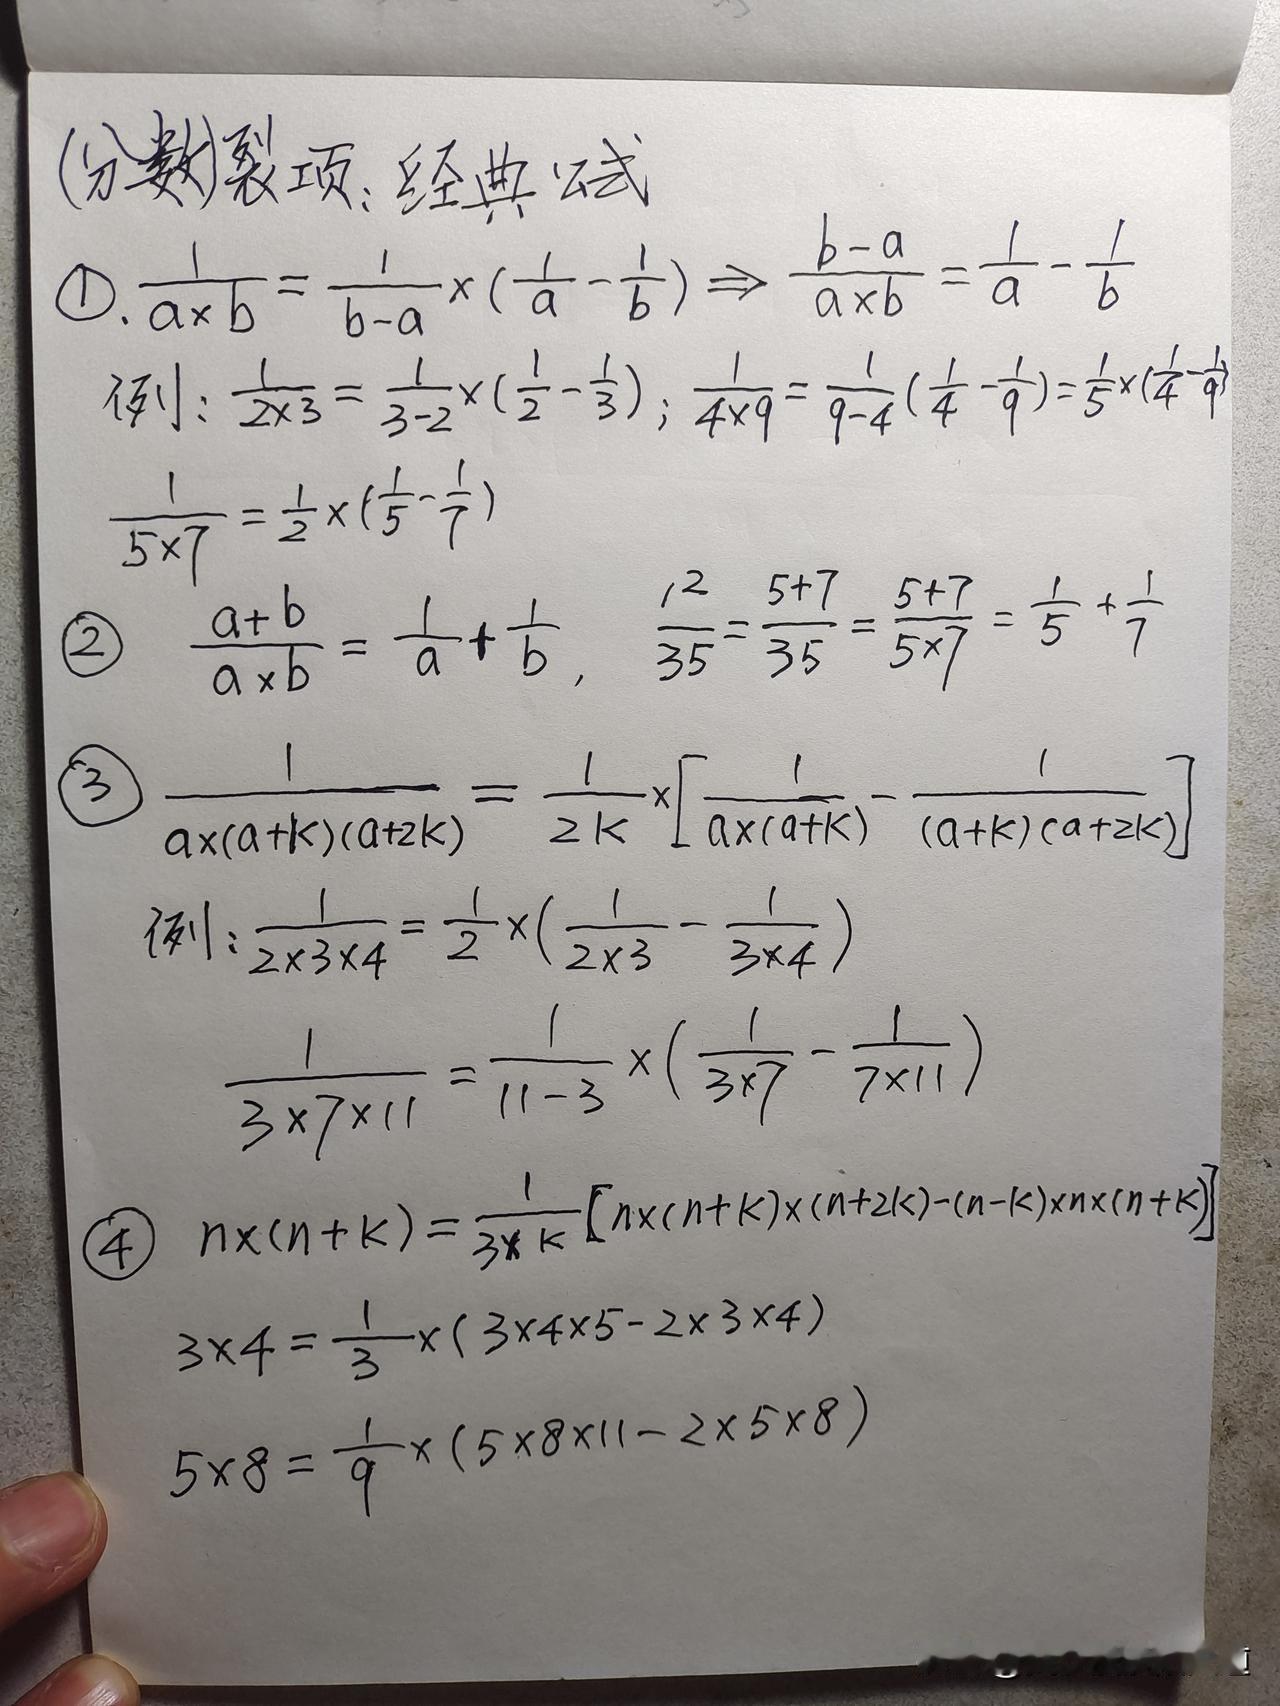 (分数)裂项:经典公式
①. 1/(a×b) = 1/(b-a) × (1/a - 1/b) ⇒ (b-a)/(a×b) = 1/a - 1/b
例: 1/(2×3) = 1/(3-2) × (1/2 - 1/3); 1/(4×9) = 1/(9-4) (1/4 - 1/9) = 1/5 × (1/4 - 1/9)
1/(5×7) = 1/2 × (1/5 - 1/7)
② (a+b)/(a×b) = 1/a + 1/b, 12/35 = (5+7)/35 = (5+7)/(5×7) = 1/5 + 1/7
③ 1/(a×(a+k)(a+2k)) = 1/(2k) × [1/(a×(a+k)) - 1/((a+k)(a+2k))]
例: 1/(2×3×4) = 1/2 × (1/(2×3) - 1/(3×4))
1/(3×7×11) = 1/(11-3) × (1/(3×7) - 1/(7×11))
④ n×(n+k) = 1/(3×k) [n×(n+k)×(n+2k)-(n-k)×n×(n+k)]
3×4 = 1/3 × (3×4×5-2×3×4)
5×8 = 1/9 × (5×8×11-2×5×8)